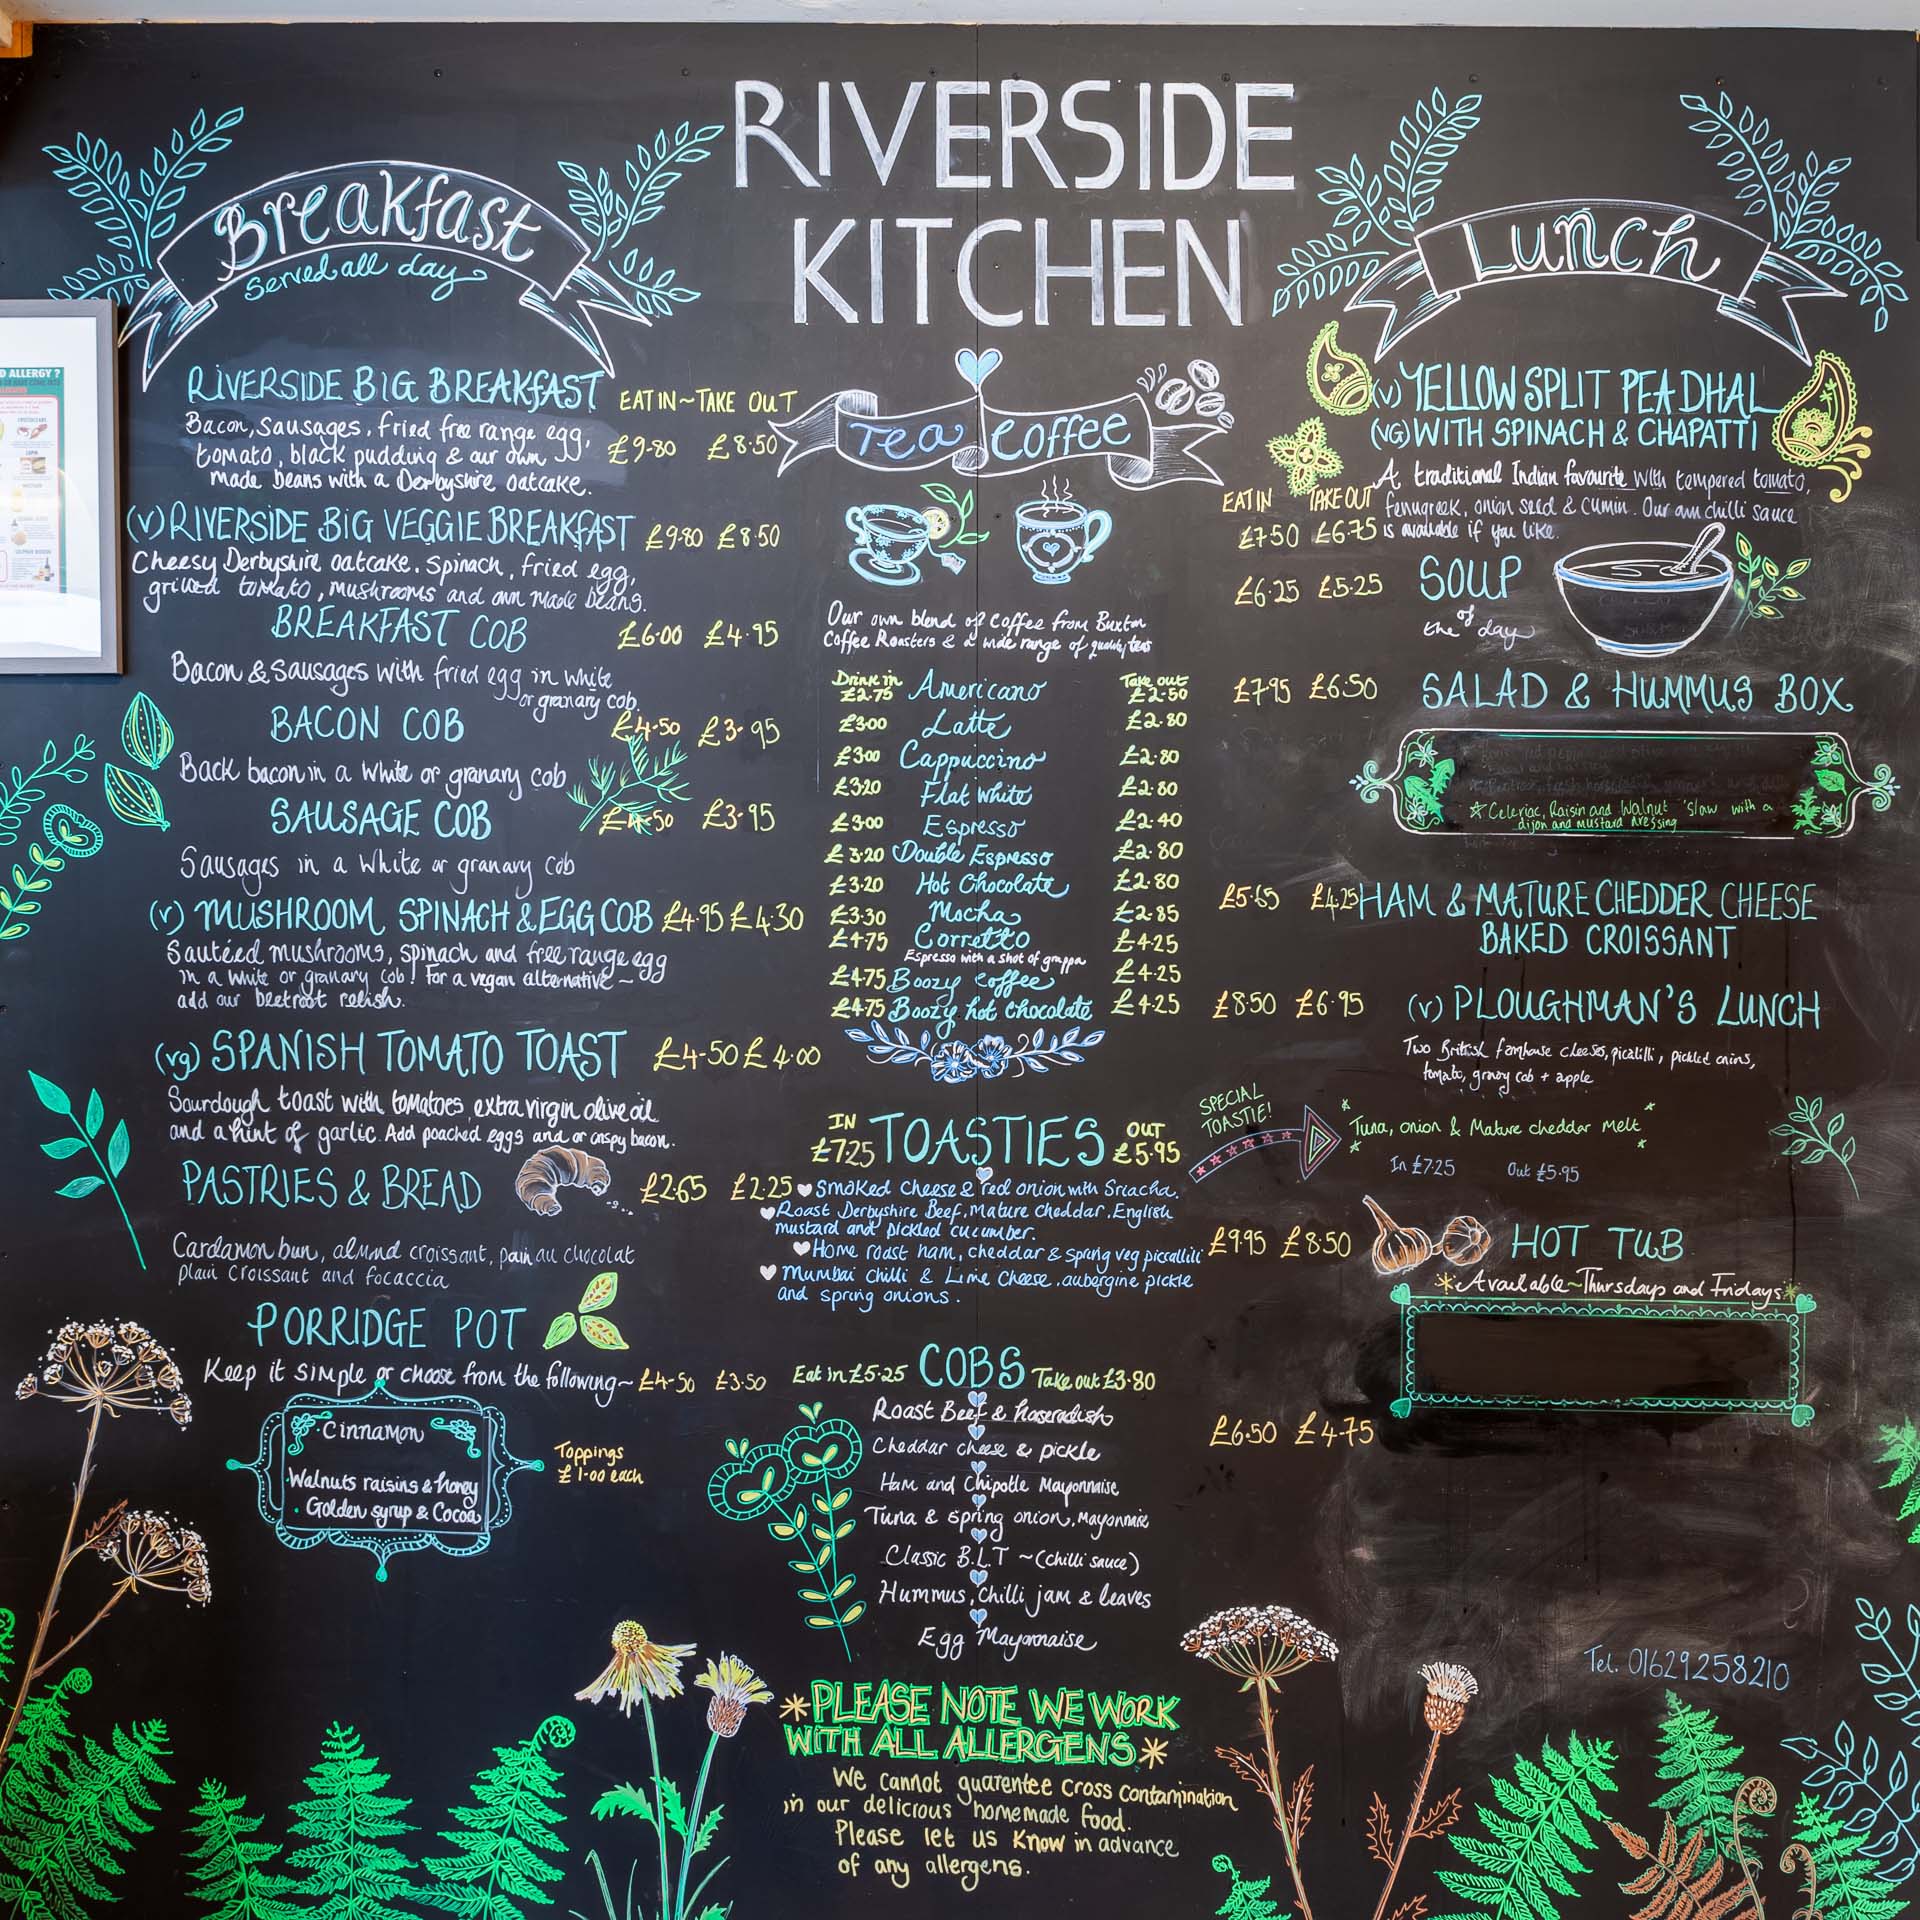 RIVERSIDE
KITCHEN
Breakfast
Served all day
RIVERSIDE BIG BREAKFAST
EAT IN ~ TAKE OUT
Bacon, Sausages, fried free range egg,
tomato, black pudding & our own
made beans with a Derbyshire oatcake.
£9.80 £8.50
(v) RIVERSIDE BIG VEGGIE BREAKFAST £9.80 £8.50
Cheesy Derbyshire oatcake. Spinach, fried egg,
grilled tomato, mushrooms and own made beans.
BREAKFAST COB £6.00 £4.95
Bacon & Sausages with fried egg in white
or granary cob.
BACON COB £4.50 £3.95
Back bacon in a white or granary cob
SAUSAGE COB £4.50 £3.95
Sausages in a white or granary cob
(v) MUSHROOM, SPINACH & EGG COB £4.95 £4.30
Sautéed mushrooms, spinach and free range egg
in a white or granary cob! For a vegan alternative ~
add our beetroot relish.
(vg) SPANISH TOMATO TOAST £4.50 £4.00
Sourdough toast with tomatoes, extra virgin olive oil
and a hint of garlic. Add poached eggs and or crispy bacon.
PASTRIES & BREAD £2.65 £2.25
Cardamon bun, almond croissant, pain au chocolat
plain croissant and focaccia
PORRIDGE POT
Keep it simple or choose from the following ~ £4.50 £3.50
Cinnamon
Walnuts raisins & honey
Golden syrup & Cocoa
Toppings
£1.00 each
Tea Coffee
Our own blend of coffee from Buxton
Coffee Roasters & a wide range of quality teas
Drink in Take out
£2.75 Americano £2.50
£3.00 Latte £2.80
£3.00 Cappuccino £2.80
£3.20 Flat white £2.80
£3.00 Espresso £2.40
£3.20 Double Espresso £2.80
£3.20 Hot Chocolate £2.80
£3.30 Mocha £2.85
£4.75 Corretto £4.25
Espresso with a shot of grappa
£4.75 Boozy Coffee £4.25
£4.75 Boozy hot chocolate £4.25
IN TOASTIES OUT
£7.25 £5.95
Smoked Cheese & red onion with Sriacha.
Roast Derbyshire Beef, Mature Cheddar, English
mustard and pickled cucumber.
Home roast ham, cheddar & spring veg piccallilli
Mumbai Chilli & Lime Cheese, aubergine pickle
and spring onions.
Eat in £5.25 COBS Take out £3.80
Roast Beef & horseradish
Cheddar cheese & pickle
Ham and Chipotle Mayonnaise
Tuna & spring onion, Mayonnaise
Classic B.L.T ~ (chilli sauce)
Hummus, Chilli jam & leaves
Egg Mayonnaise
*PLEASE NOTE WE WORK
WITH ALL ALLERGENS*
We cannot guarentee cross contamination
in our delicious homemade food.
Please let us know in advance
of any allergens.
Lunch
(v) YELLOW SPLIT PEA DHAL
(VG) WITH SPINACH & CHAPATTI
A traditional Indian favourite with tempered tomato,
fenugreek, onion seed & cumin. Our own chilli sauce
is available if you like.
EAT IN TAKE OUT
£7.50 £6.75
£6.25 £5.25 SOUP
of
the day
£7.95 £6.50 SALAD & HUMMUS BOX
* Celeriac, Raisin and Walnut 'Slaw with a
dijon and mustard dressing
£5.65 £4.25 HAM & MATURE CHEDDER CHEESE
BAKED CROISSANT
£8.50 £6.95 (v) PLOUGHMAN'S LUNCH
Two British farmhouse cheeses, picalilli, pickled onions,
tomato, granary cob + apple
SPECIAL
TOASTIE!
Tuna, onion & Mature cheddar Melt
In £7.25 Out £5.95
£9.95 £8.50 HOT TUB
*Available ~ Thursdays and Fridays*
£6.50 £4.75
Tel. 01629258210
ALLERGY?